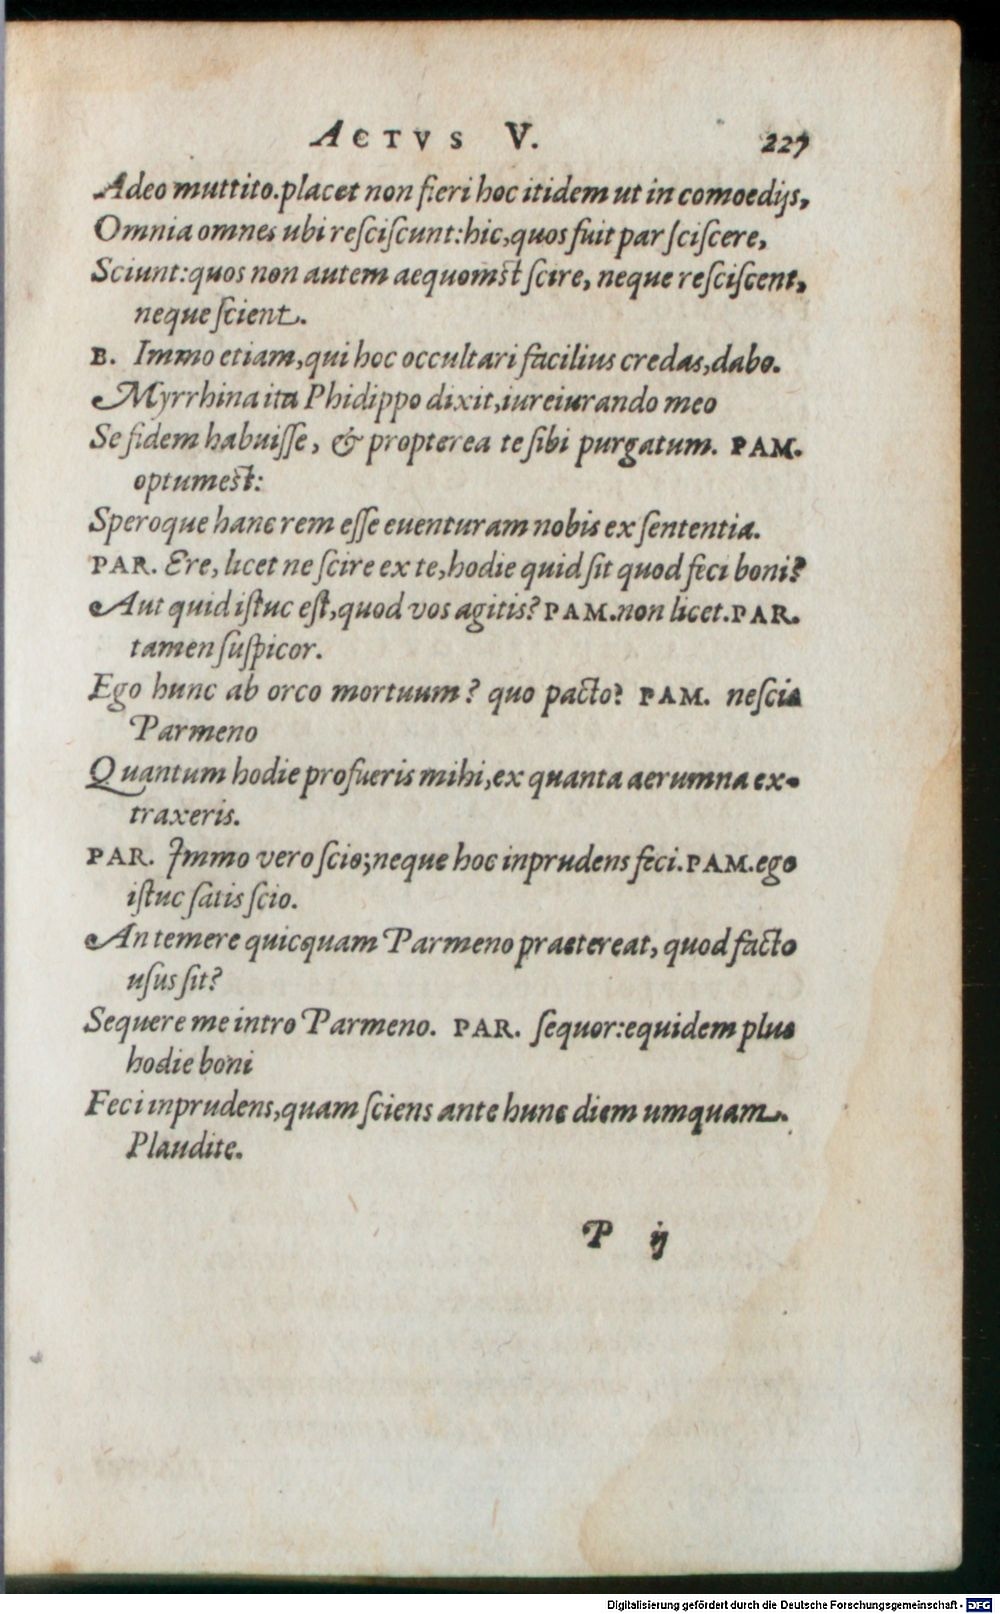 ACTVS V. 227
Adeo muttito.placet non fieri hoc itidem ut in comoedijs,
Omnia omnes ubi resciscunt:hic,quos fuit par sciscere,
Sciunt:quos non autem aequomst scire, neque resciscent,
neque scient.
B. Immo etiam,qui hoc occultari facilius credas,dabo.
Myrrhina ita Phidippo dixit,iureiurando meo
Se fidem habuisse, & propterea te sibi purgatum. PAM.
optumest:
Speroque hanc rem esse euenturam nobis ex sententia.
PAR. Ere, licet ne scire ex te,hodie quid sit quod feci boni?
Aut quid istuc est,quod vos agitis? PAM.non licet.PAR.
tamen suspicor.
Ego hunc ab orco mortuum? quo pacto? PAM. nescis
Parmeno
Quantum hodie profueris mihi,ex quanta aerumna ex-
traxeris.
PAR. Immo vero scio;neque hoc inprudens feci.PAM.ego
istuc satis scio.
An temere quicquam Parmeno praetereat, quod facto
usus sit?
Sequere me intro Parmeno. PAR. sequor:equidem plus
hodie boni
Feci inprudens,quam sciens ante hunc diem umquam.
Plaudite.
P ij
Digitalisierung gefördert durch die Deutsche Forschungsgemeinschaft - DFG